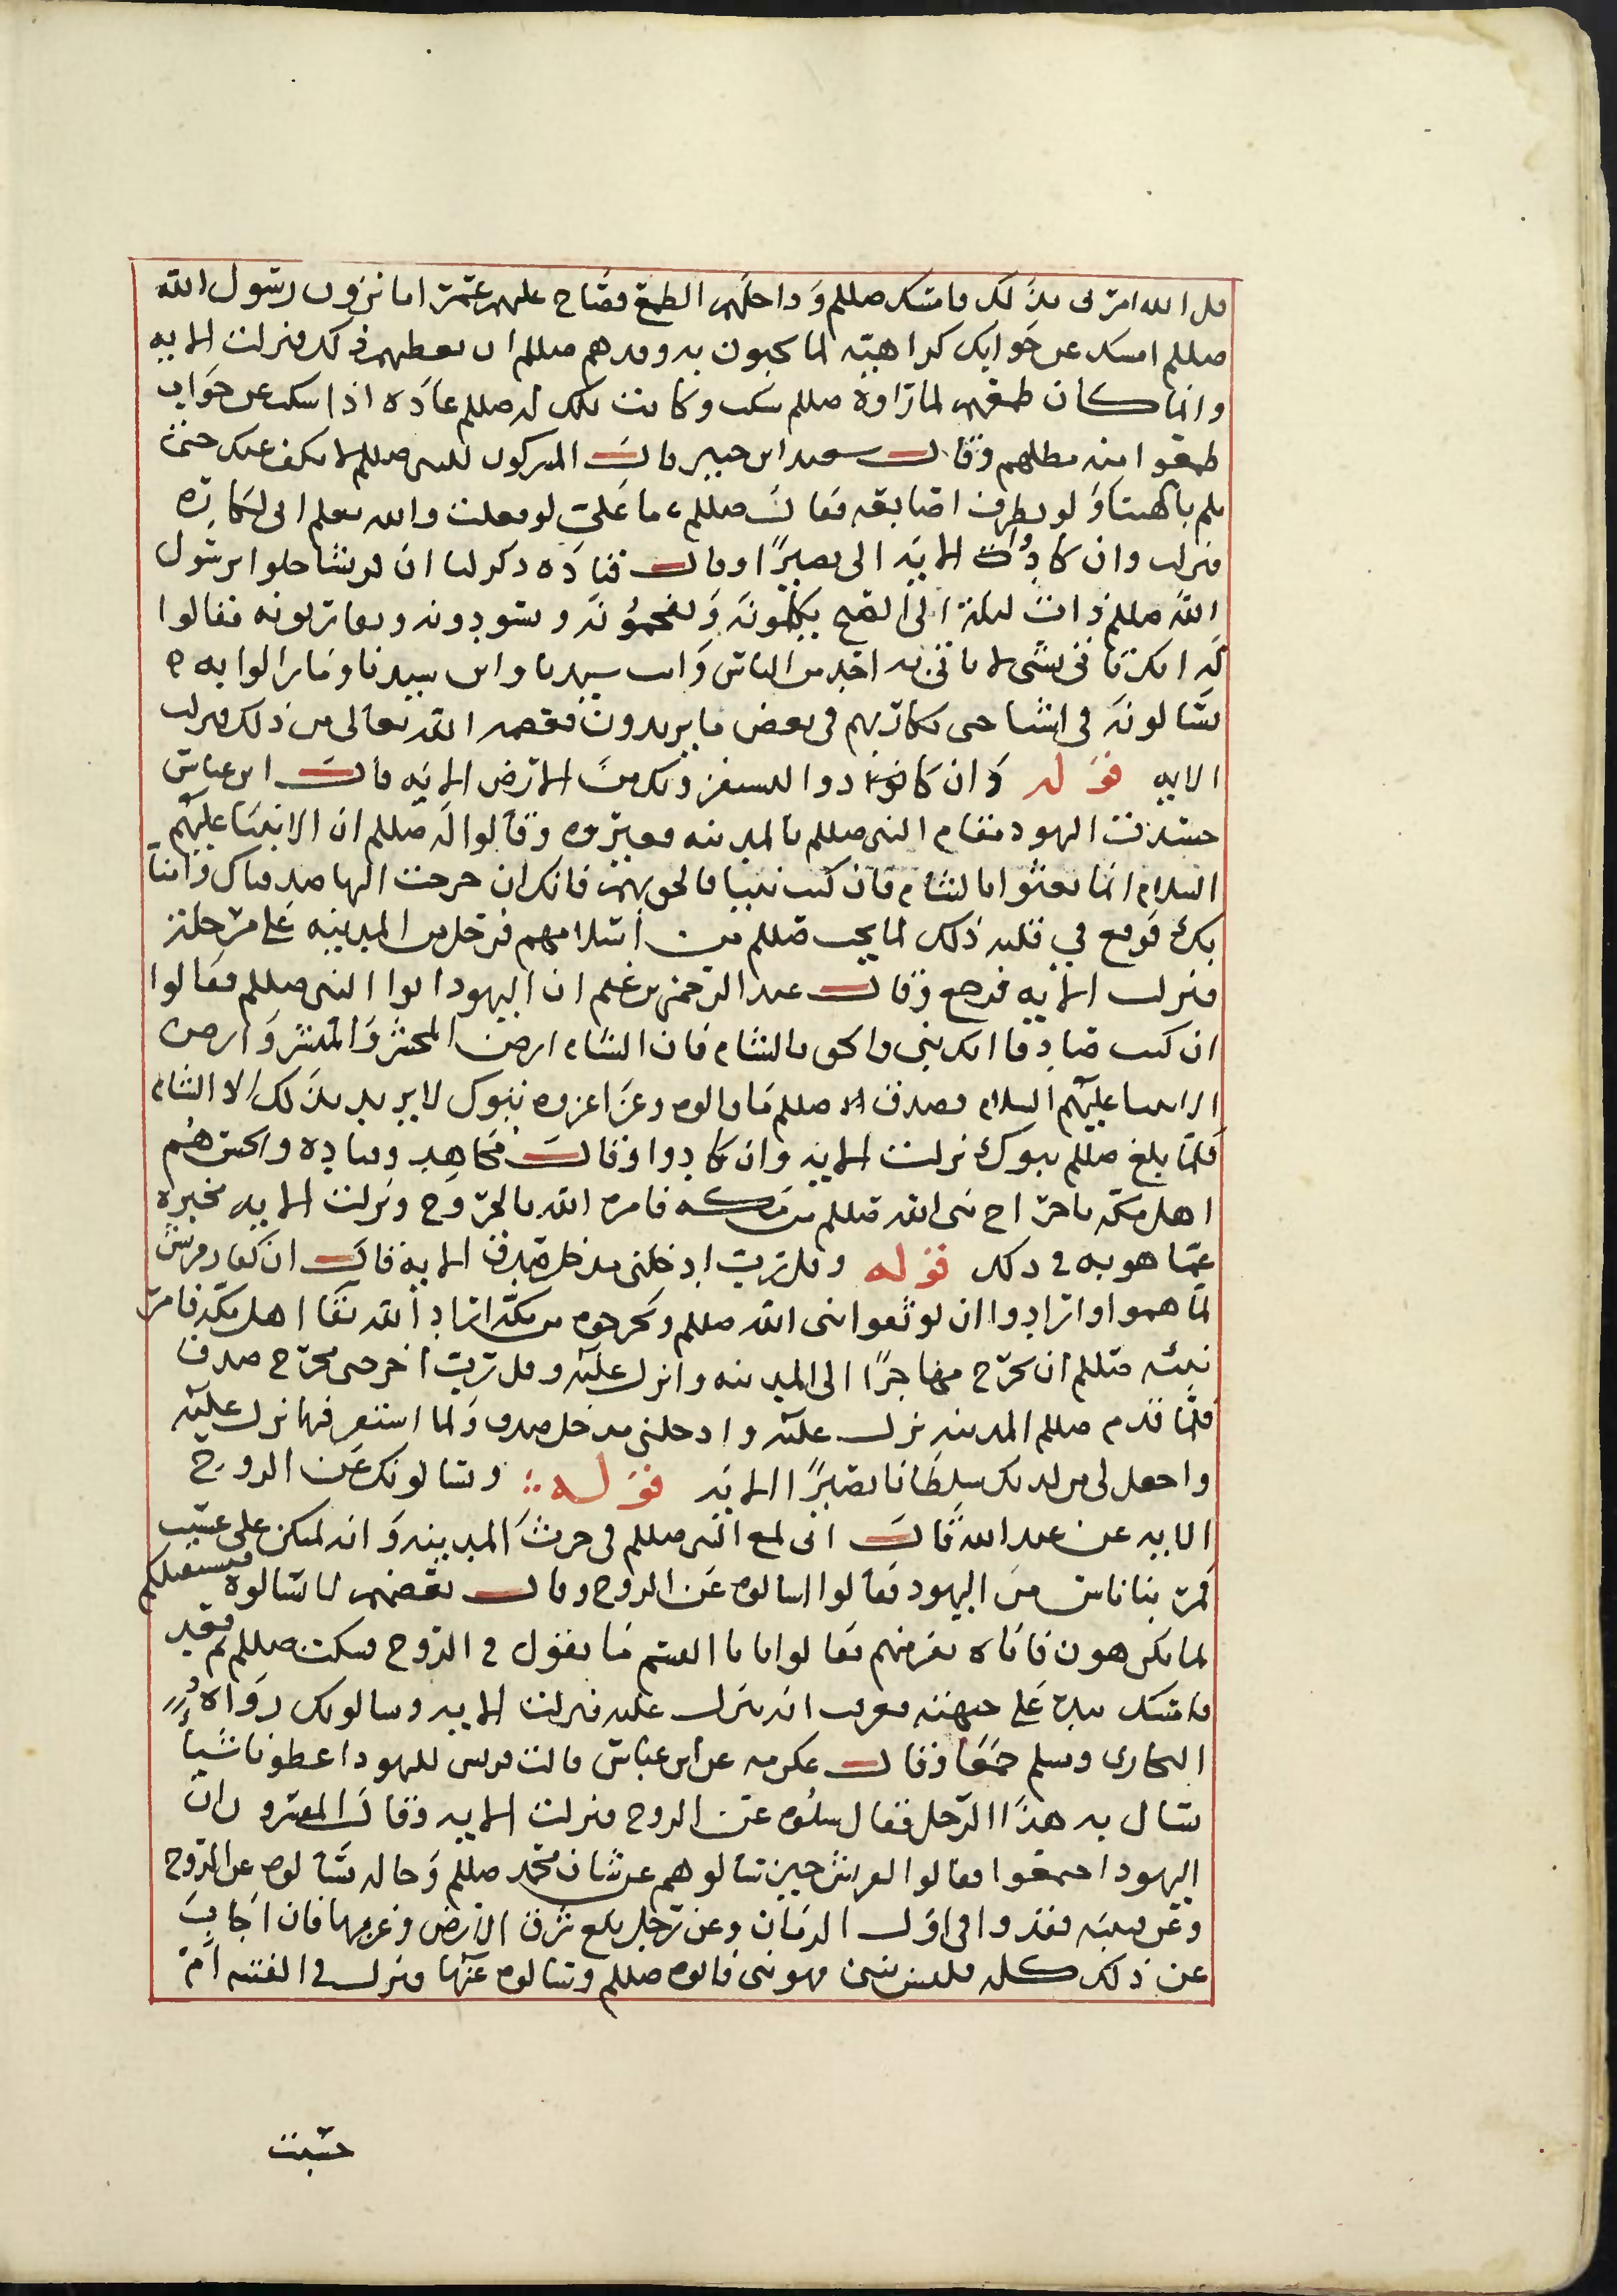 قل الله امرنى بذلك فامسك صللم وداخلهم الطمع فصاح عليهم عمر اما ترون رسول الله
صللم امسك عن جوابكم كراهية لما تجيون به وقد هم صللم ان يعطيهم ذلك فنزلت الايه
وانما كان طمعهم لما راوه صللم سكت وكانت تلك له صللم عاده اذا سكت عن جواب
طمعوا منه مطلبهم وقال سعيد ابن جبير قال المشركون للنبى صللم لا نكف عنك حتى
تلم بالهتنا ولو بطرف اصابعه فقال صللم ما على لو فعلت والله يعلم انى لكاره
فنزلت وان كادوا الايه الى نصيرًا وقال قتاده ذكر لنا ان قريشا خلوا برسول
الله صللم ذات ليلة الى الصبح يكلمونه ويفخمونه ويسودونه ويقاربونه فقالوا
له انك تاتى بشى لا ياتى به احد من الناس وانت سيدنا وابن سيدنا وما زالوا به
يسالونه فى اشيا حتى كاربهم فى بعض ما يريدون فعصمه الله تعالى من ذلك فنزلت
الايه قوله وان كادوا ليستفزونك من الارض الايه قال ابن عباس
حسدت اليهود مقام النبى صللم بالمدينه فعيروه وقالوا له صللم ان الانبيا عليهم
السلام انما بعثوا بالشام فان كنت نبيا فالحق بهم فانك ان خرجت اليها صدقناك وامنا
بك فوقع في قلبه ذلك لما يحب صللم من اسلامهم فرحل من المدينه على مرحلة
فنزلت الايه فرجع وقال عبد الرحمن بن غنم ان اليهود اتوا النبى صللم فقالوا
ان كنت صادقا انك نبى فالحق بالشام فان الشام ارض المحشر والمنشر وارض
الانبيا عليهم السلام فصدق صللم ما قالوه وغزا غزوه تبوك لا يريد بذلك الا الشام
فلما بلغ صللم تبوك نزلت الايه وان كادوا وقال مجاهد وقتاده والحسن هم
اهل مكه باخراج نبى الله صللم من مكه فامره الله بالخروج ونزلت الايه مخبره
عما هو به فى ذلك قوله وقل رب ادخلنى مدخل صدق الايه قال ان كفار قريش
لما هموا وارادوا ان يوثقوا نبى الله صللم ويخرجوه من مكه اراد الله بقا اهل مكه فامر
نبيه صللم ان يخرج مهاجرًا الى المدينه وانزل عليه وقل رب اخرجنى مخرج صدق
فلما قدم صللم المدينه نزل عليه وادخلنى مدخل صدق ولما استقر فيها نزل عليه
واجعل لى من لدنك سلطانا نصيرًا الايه قوله ويسالونك عن الروح
الايه عن عبد الله قال انى لمع النبى صللم فى حرث المدينه وانه لمتكئ على عسيب
فمر بنا ناس من اليهود فقالوا اسالوه عن الروح وقال بعضهم لا تسالوه فيستقبلكم
لما تكرهون فاتاه نفر منهم فقالوا يا ابا القسم ما تقول فى الروح فسكت صللم ثم قعد
فامسك بيده على جبهته فعرفت انه ينزل عليه فنزلت الايه ويسالونك رواه
البخارى ومسلم جمعا وقال عكرمه عن ابن عباس قالت قريش لليهود اعطونا شيا
نسال به هذا الرجل فقال سلوه عن الروح فنزلت الايه وقال المفسرون ان
اليهود اجتمعوا فقالوا لقريش حين سالوهم عن شان محمد صللم وحاله سالوه عن الروح
وعن فتيه فقدوا فى اول الزمان وعن رجل بلغ شرق الارض وغربها فان اجاب
عن ذلك كله فليس بنبى فهو نبى فاتوه صللم وسالوه عنها فنزل فى الفتيه ام
حسبت